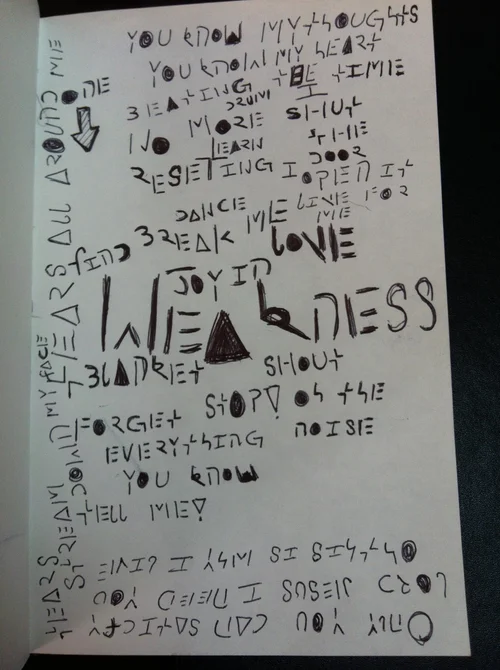 YOU KNOW MY THOUGHTS
YOU KNOW MY HEART
BEATING THE TIME
DRUM I
NO MORE SHUT
LEARN THE
RESETING DOOR
I OPEN IT
DANCE LIVE FOR
BREAK ME ME
FIND LOVE
JOY IN
WEAKNESS
BLANKET SHOUT
STOP! OH THE
FORGET NOISE
EVERYTHING
YOU KNOW
TELL ME!
ONLY YOU CAN SATISFY
LORD JESUS I NEED YOU
OH THIS IS WHY I LIVE
TEARS ALL AROUND ME
TEARS STREAM DOWN MY FACE
ONE